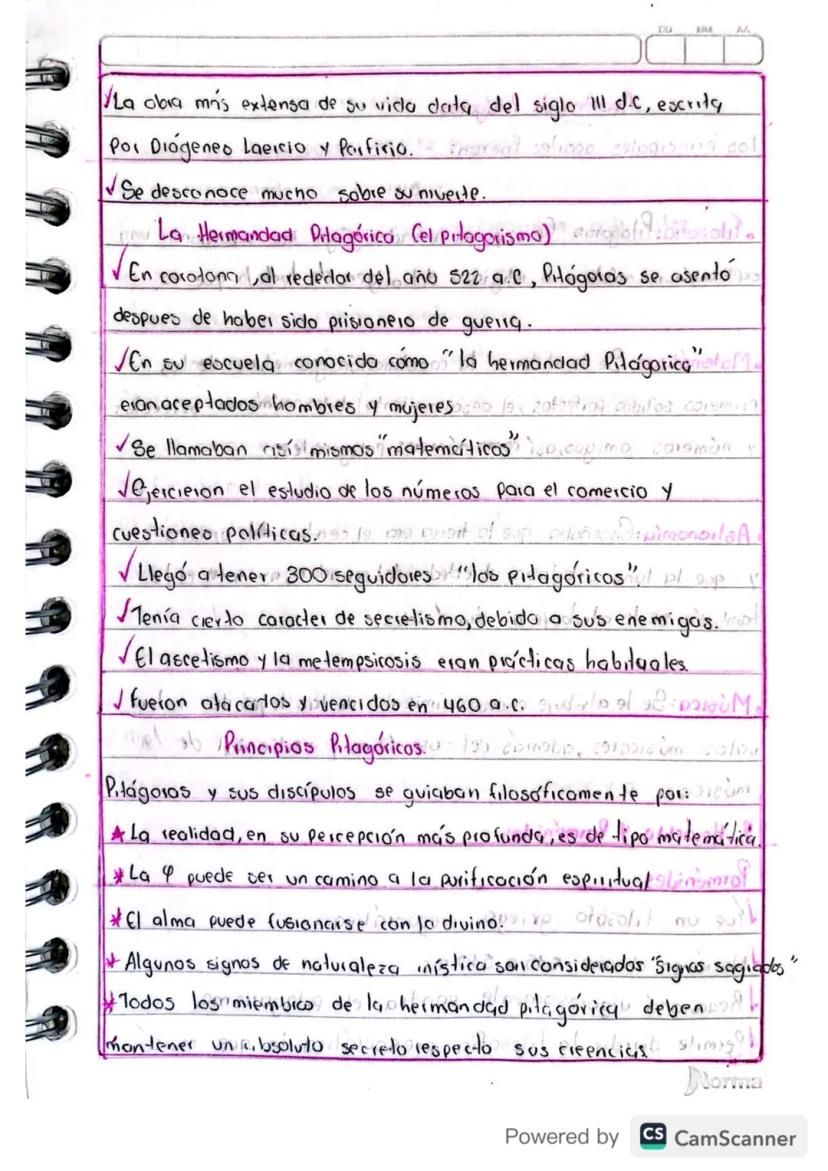 DD MM AA
✓La obra más extensa de su vida data del siglo III d.C, escrita
por Diógenes Laercio y Porfirio.
✓Se desconoce mucho sobre su muerte.
La Hermandad Pitagórica (el pitagorismo)
✓En corotona, al rededor del año 522 a.C, Pitágoras se asentó
despues de haber sido prisionero de guerra.
✓En su escuela conocida como "la hermandad Pitágorica"
eran aceptados hombres y mujeres
✓Se llamaban asísí mismos "matemáticos"
✓Ejercieron el estudio de los números para el comercio y
cuestiones políticas.
✓Llegó a tener 300 seguidores "los pitagóricos".
✓Tenía cierto caracter de secretismo, debido a sus enemigos.
✓El ascetismo y la metempsicosis eran prácticas habituales.
✓fueron atacados y vencidos en 460 a.c.
Principios Pitagóricos.
Pitágoras y sus discípulos se guiaban filosóficamente por:
*La realidad, en su percepción más profunda, es de tipo matemática.
*La φ puede ser un camino a la purificación espiritual
*El alma puede fusionarse con lo divino.
*Algunos signos de naturaleza mística son considerados "Signos sagrados"
*Todos los miembros de la hermandad pitagórica deben
mantener un absoluto secreto respecto sus creencias
Norma
Powered by CS CamScanner